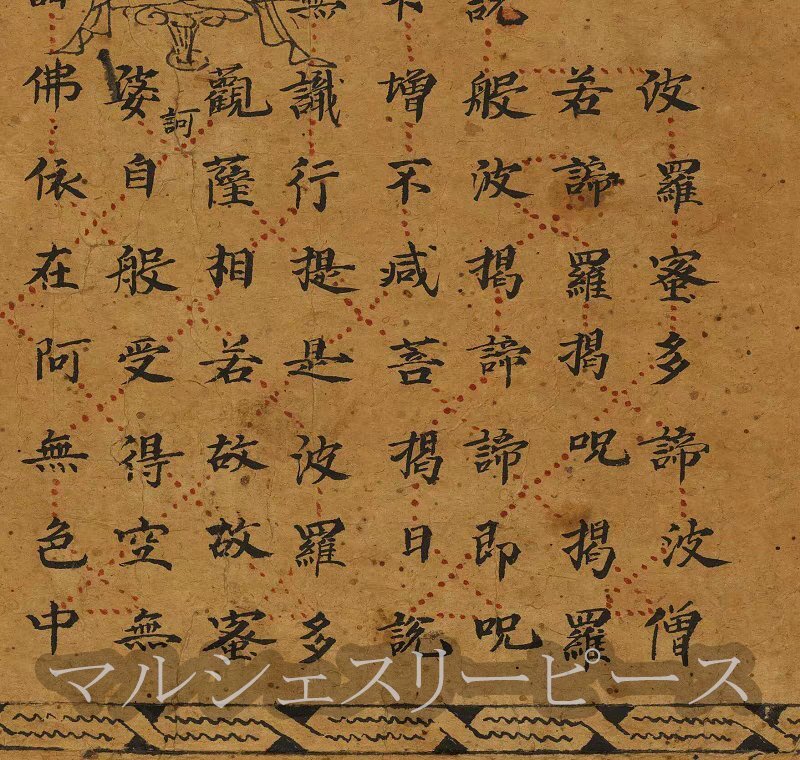 波羅蜜多諦波僧
若諦羅揭呪揭羅
說般波揭諦諦即呪
不增不減菩揭日說
無識行提是波羅多
觀薩相若故故蜜
婆自般受得空無
訶
佛依在阿無色中
マルシェスリーピース